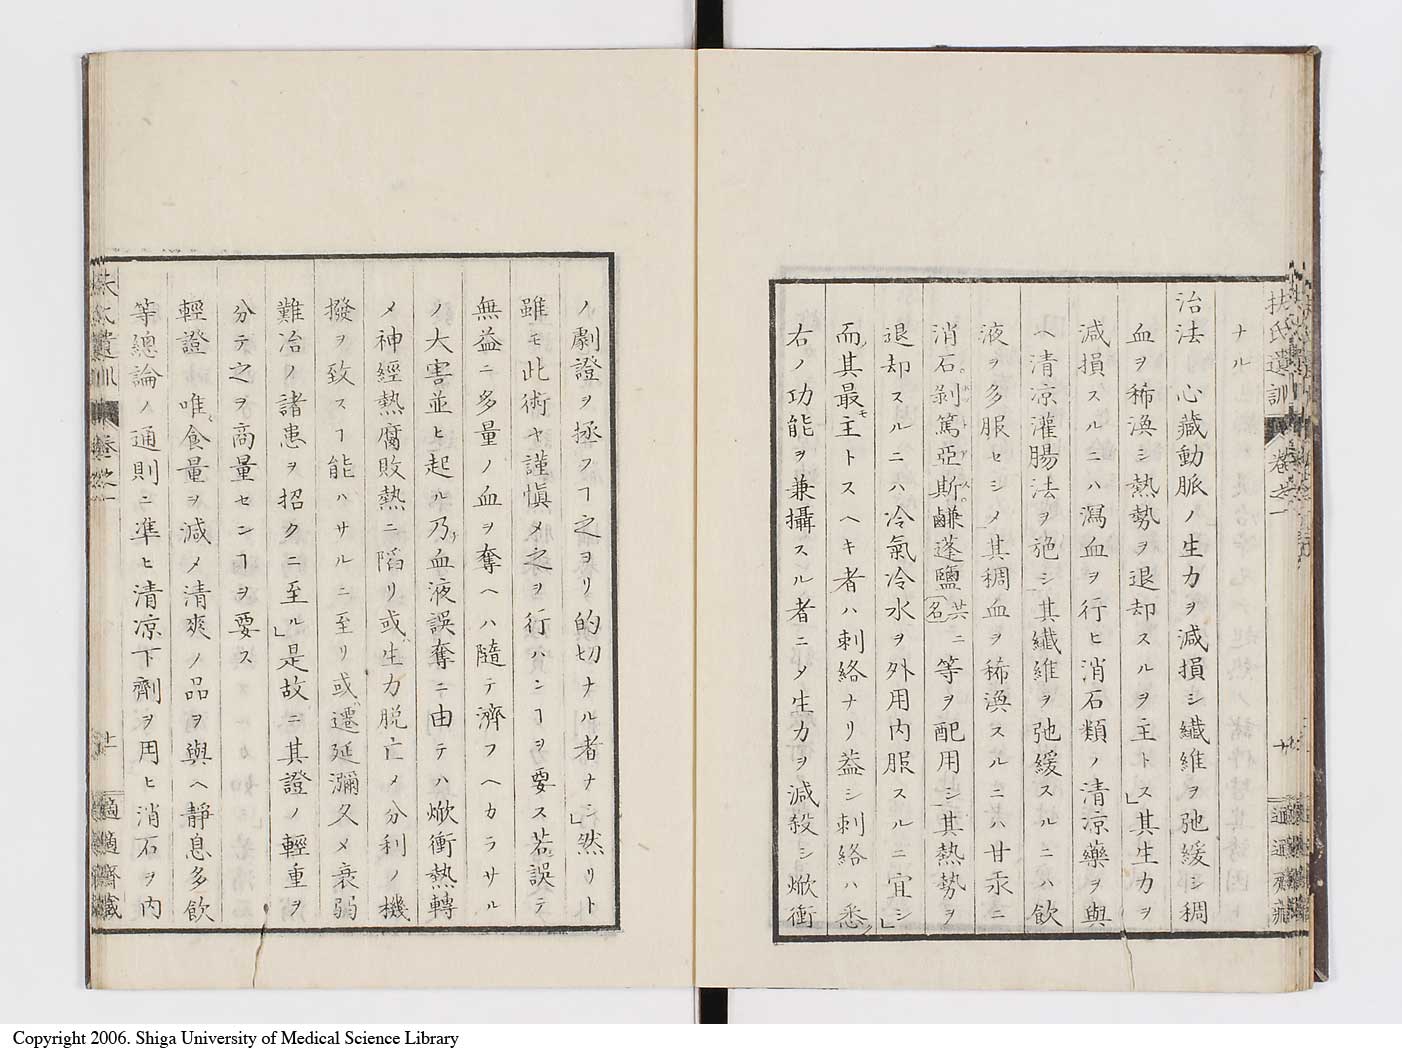 扶氏遺訓 卷之一
ナル
治法　心藏動脈ノ生力ヲ減損シ纎維ヲ弛緩シ稠
血ヲ稀渙シ熱勢ヲ退却スルヲ主トス」其生力ヲ
減損スルニハ瀉血ヲ行ヒ消石類ノ清凉藥ヲ與
ヘ清凉灌腸法ヲ施シ其纎維ヲ弛緩スルニハ飲
液ヲ多服セシメ其稠血ヲ稀渙スルニハ甘汞ニ
消石。剝篤亞斯。鹻蓬鹽共ニ名等ヲ配用シ其熱勢ヲ
退却スルニハ冷氣冷水ヲ外用内服スルニ宜シ」
而其最モ主トスヘキ者ハ刺絡ナリ葢シ刺絡ハ悉ク
右ノ功能ヲ兼攝スル者ニメ生力ヲ減殺シ焮衝
ノ劇證ヲ拯フヿ之ヨリ的切ナル者ナシ」然リト
雖モ此術ヤ謹愼メ之ヲ行ハンヿヲ要ス若シ誤テ
無益ニ多量ノ血ヲ奪ヘハ隨テ濟フヘカラサル
ノ大害並ヒ起ル乃チ血液誤奪ニ由テハ焮衝熱轉
メ神經熱腐敗熱ニ陷リ或ハ生力脱亡メ分利ノ機
撥ヲ致スヿ能ハサルニ至リ或ハ遷延瀰久メ衰弱
難治ノ諸患ヲ招クニ至ル」是故ニ其證ノ輕重ヲ
分テ之ヲ商量センヿヲ要ス
輕證ハ唯食量ヲ減メ清爽ノ品ヲ與ヘ靜息多飲
等總論ノ通則ニ準ヒ清凉下劑ヲ用ヒ消石ヲ内
扶氏遺訓 卷之一
十一
適適齋藏
Copyright 2006. Shiga University of Medical Science Library